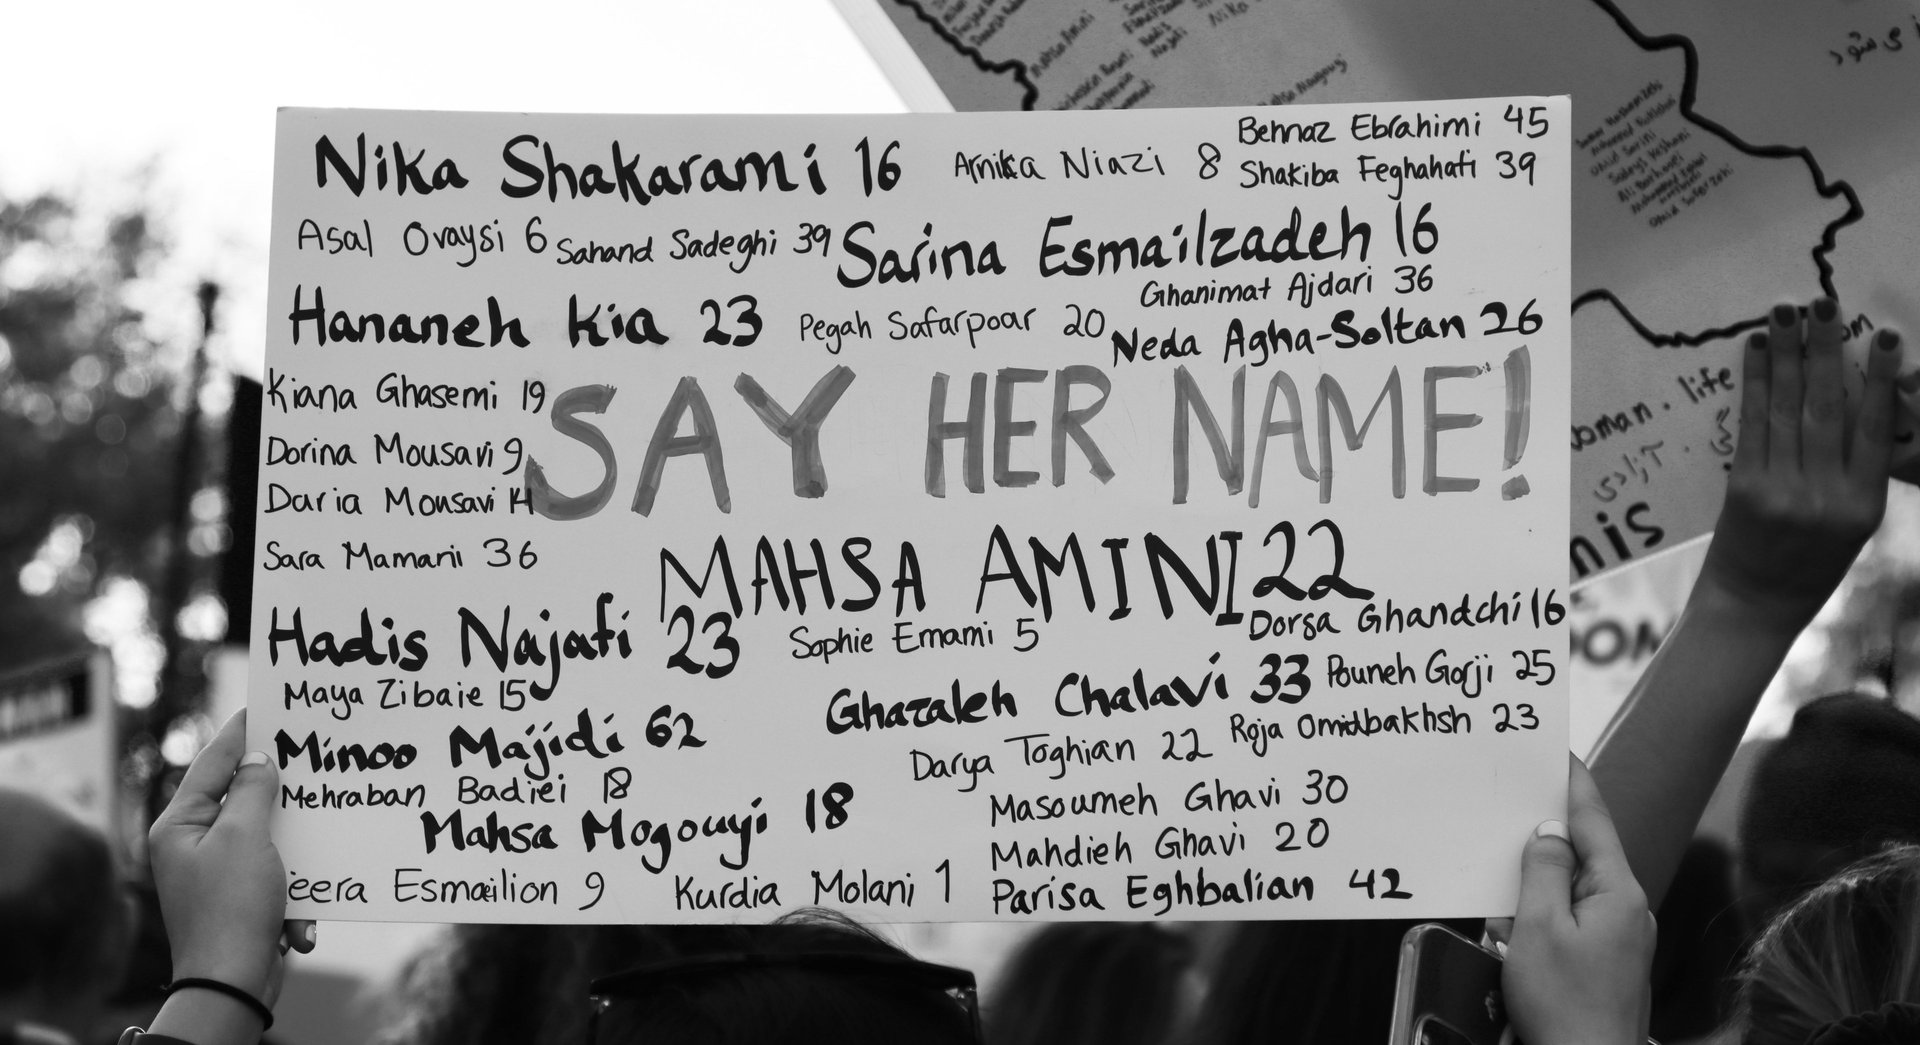 Nika Shakarami 16
Arnika Niazi 8
Behnaz Ebrahimi 45
Shakiba Feghahati 39
Asal Ovaysi 6
Sahand Sadeghi 39
Sarina Esmailzadeh 16
Ghanimat Ajdari 36
Hananeh Kia 23
Pegah Safarpoar 20
Neda Agha-Soltan 26
Kiana Ghasemi 19
SAY HER NAME!
Dorina Mousavi 9
Daria Mousavi 14
Sara Mamani 36
MAHSA AMINI 22
Hadis Najafi 23
Sophie Emami 5
Dorsa Ghandchi 16
Maya Zibaie 15
Ghazaleh Chalavi 33
Pouneh Gorji 25
Minoo Majidi 62
Darya Toghian 22
Roja Omidbakhsh 23
Mehraban Badiei 18
Mahsa Mogouyi 18
Masoumeh Ghavi 30
Mahdieh Ghavi 20
eera Esmaeilion 9
Kurdia Molani 1
Parisa Eghbalian 42
oman . life